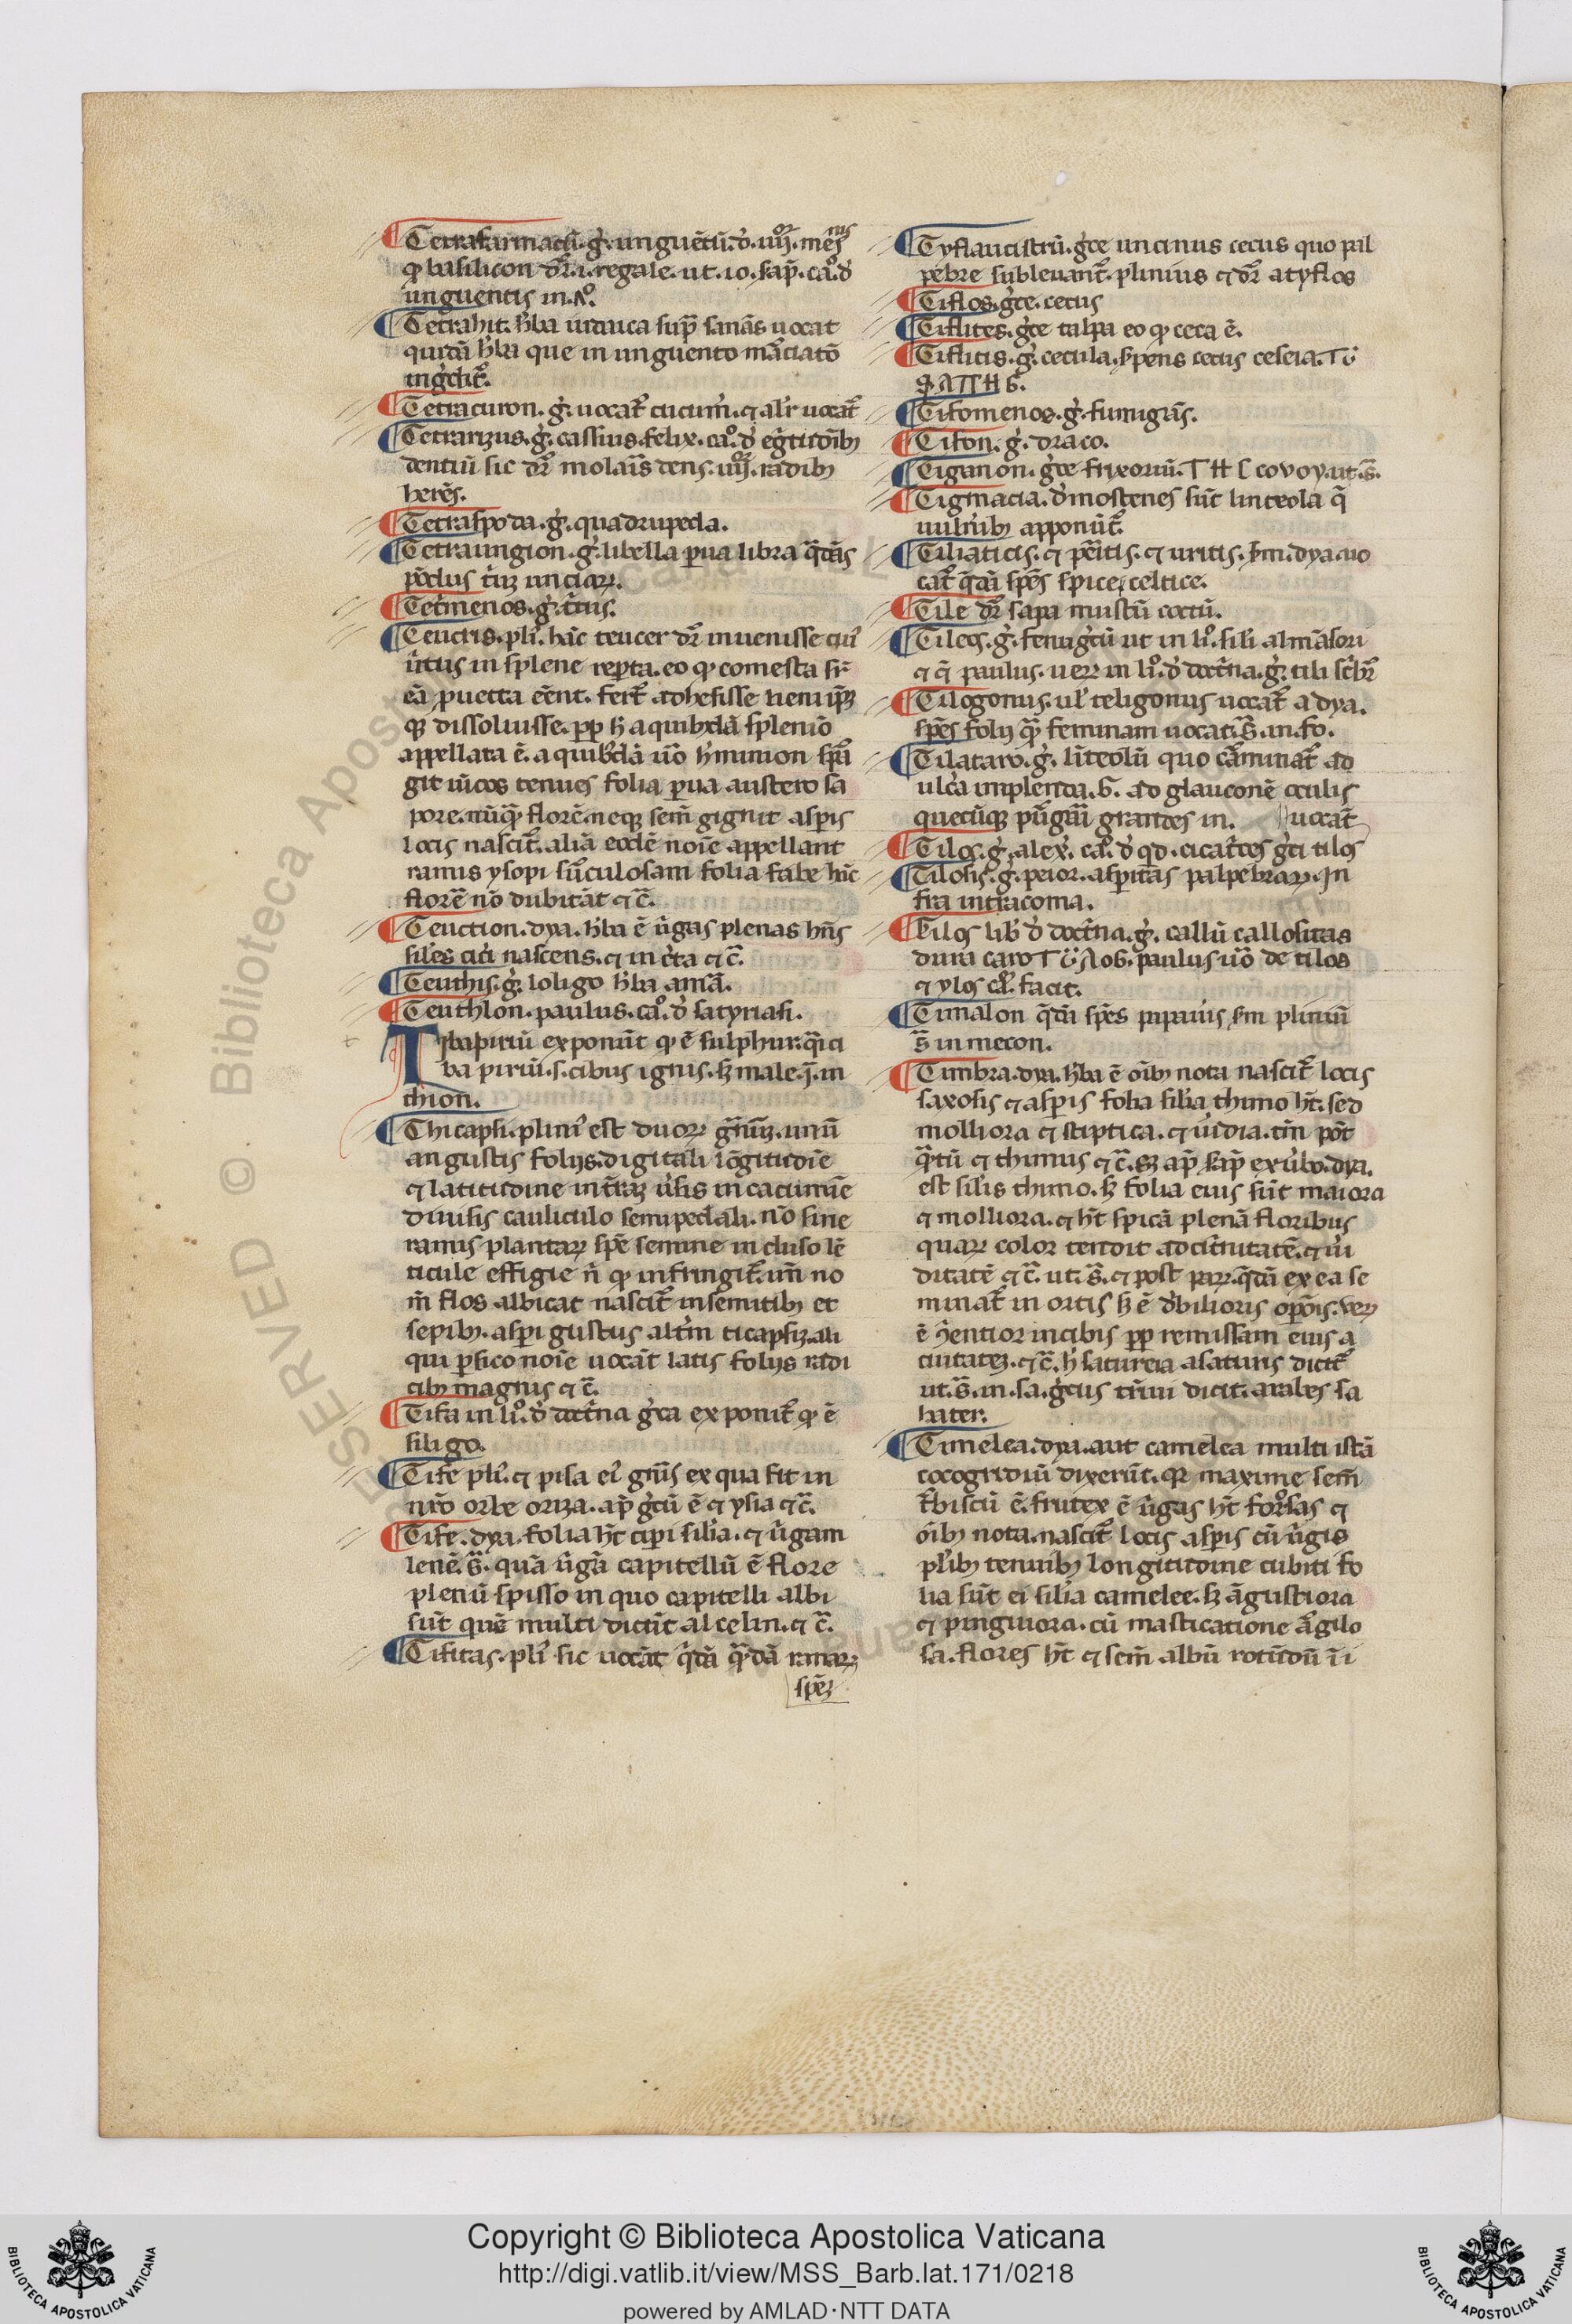 Tetrafarmacū. g̊. unguētū. d̓. iiij. mēs
ꝙ basilicon dr̄. i. regale. ut. io. sap̄. ca̓. d̓
unguentis in. ꝟ.
Tetrahit. h̓ba iudaica sup̄ sanās uocat
quidā h̓ba que in unguento mārciatō
ingredit᷑.
Tetracuron. g̊. uocat᷑ cucum̓. ⁊ al'r uocat᷑
Tetrarizus. g̊. cassius. felix. ca̓. d̓ egritōib⁊
dentiū sic dr̄ molaris dens. iiij. radib⁊
herēs.
Tetraspoda. g̊. quadrupeda.
Tetraungion. g̊. libella ꝑua libra q̄dās
pōdus triū unciaꝝ.
Tetmenos. g̊. tritus.
Teucris. pli̓. hāc teucer dr̄ inuenisse cui̓
uirtus in splene reꝑta. eo ꝙ comesta sit̄
eā ꝓiecta eēnt. fert᷑ adhesisse lieni ip̄z
qꝫ dissoluisse. ꝓp h̄ a quibusdā spleniō
appellata ē. a quib⁊dā uō h̓minion spār
git iūcos tenues folia ꝑua austero sa
pore. nūqȝ florē. neqꝫ sem̄ gignit asꝑis
locis nascit᷑. aliā eodē noīe appellant
ramis ysopi sur̄culosam folia fabe hāc
florē nō dubitāt ⁊ c̄.
Teuction. dya. h̓ba ē uirgas plenas hn̄s
siles ciči nascens. ⁊ in creta ⁊ c̄.
Teuthis. g̊. loligo h̓ba amarā.
Teuthlon. paulus. ca̓. d̓ satyriasi.
Thapiriū exponūt ꝙ ē sulphur. q̄ i ci
ba piriū. s. cibus ignis. s⁊ male. q. in
thion.
Thicapsi. plini̓ est duoꝝ genēꝝ. unū
angustis folijs. digitali lōgitudīe
⁊ latitudine intraȝ ūsis in cacumīe
diuisis cauliculo semipedali. nō sine
ramis plantaꝝ spē semine incluso lē
ticule effigie n̄ ꝙ infringit᷑. im̄ no
m̄ flos albicat nascit᷑ in semitib⁊ et
sepib⁊. asperi gustus altm̄ ticapsiȝ ali
qui ꝑsico noīe uocāt latis folijs radi
cib⁊ magnis ⁊ c̄.
Tifa in li̓. d̓ doctrina greca exponit᷑ ꝙ ē
siligo.
Tife pli̓. ⁊ pisa ei̓ gn̄is ex qua fit in
nr̄o orbe oriza. ap̄ grecū ē ⁊ ysia ⁊ c̄.
Tife. dya. folia h̄t cipi silīa. ⁊ uirgam
lenē. s̄. quā uirgā capitellū ē flore
plenū spisso in quo capitelli albi
sūt quē multi dicūt alcelin. ⁊ c̄.
Tifitas. pli̓ sic uocāt q̄dā q̄dā ranaꝝ
spēȝ
Tyflancistrū. grece uncinus cecus quo pal
pebre subleuant᷑. plinius ⁊ dr̄ atyflos
Tiflos. grece. cecus
Tiflites. grece talpa eo ꝙ ceca ē.
Tiflitis. g̊. cecula. serpens cecus cescia.
Tifomenos. g̊. fumigās.
Tifon. g̊. draco.
Tiganon. grece frixoriū. ut. s̄.
Tigmacia. d̓mostenes sūt linteola q̄
uulnerib⁊ apponūt᷑.
Tiliaticis. ⁊ peritis. ⁊ uritis. sm̄. dya. uo
cat᷑ q̄dā spēs spice celtice.
Tile dr̄ sapa mustū coctū.
Tiles. g̊. fenugrecū ut in li̓. sili almāsori
⁊ q̄ paulus. ueꝝ in li̓. d̓ doctrina. g̊. tili scribr̄
Tilogonus. ul̓ teligonus uocat᷑ a dya.
spēs folij quā feminam uocat. s̄. in. fo.
Tilataro. g̊. linteolū quo carminat᷑ ad
ulcera implenda. G. ad glauconē oculis
quecūqꝫ pungūt grandes in. uocāt
Tilos. g̊. alex̓. ca̓. d̓ qd. cicatces greci tilos
Tilosis. g̊. peior. asperitas palpebraꝝ. In
fra in tracoma.
Tilos lib̓ d̓ doctrina. g̊. callū callositas
dura caro paulus uō de tilos
⁊ ylos cōr. facit.
Timalon q̄dā spēs papaueris sm̄ pliniū
s̄ in mecon.
Timbra. dya. h̓ba ē oīb⁊ nota nascit᷑ locis
saxosis ⁊ asꝑis folia silīa thimo h̄t. sed
molliora ⁊ stiptica. ⁊ uiridia. tm̄ pōt
q̄tū ⁊ thimus ⁊ c̄. s⁊ ap̄ sap̄ ex ubo. dya.
est silis thimo. s⁊ folia eius sūt maiora
⁊ molliora. ⁊ h̄t spicā plenā floribus
quaꝝ color tendit ad citrinitatē. ⁊ ui
ditatē ⁊ c̄. ut. s̄. ⁊ post paꝝ. q̄dā ex ea se
minat᷑ in ortis s⁊ ē debilioris oꝑōis. ueꝝ
ē hēntior in cibis ꝓp remissam eius a
cuitateȝ. ⁊ c̄. h̓ satureia a saturis dicit᷑
ut. s̄. in. sa. grecus trīui dicit. arabes sa
hater.
Timelea. dya. aut camelea multi istā
cocogridiū dixerūt. qꝛ maxime sem̄
turbiscū ē. frutex ē uirgas h̄t formosas ⁊
oīb⁊ nota. nascit᷑ locis asꝑis cū uirgis
plurib⁊ tenuib⁊ longitudine cubiti fo
lia sūt ei silīa camelee. s⁊ āgustiora
⁊ pinguiora. cū masticatione āgilo
sa. flores h̄t ⁊ sem̄ albū rotūdū ī i
Copyright © Biblioteca Apostolica Vaticana
http://digi.vatlib.it/view/MSS_Barb.lat.171/0218
powered by AMLAD·NTT DATA
BIBLIOTECA APOSTOLICA VATICANA
BIBLIOTECA APOSTOLICA VATICANA